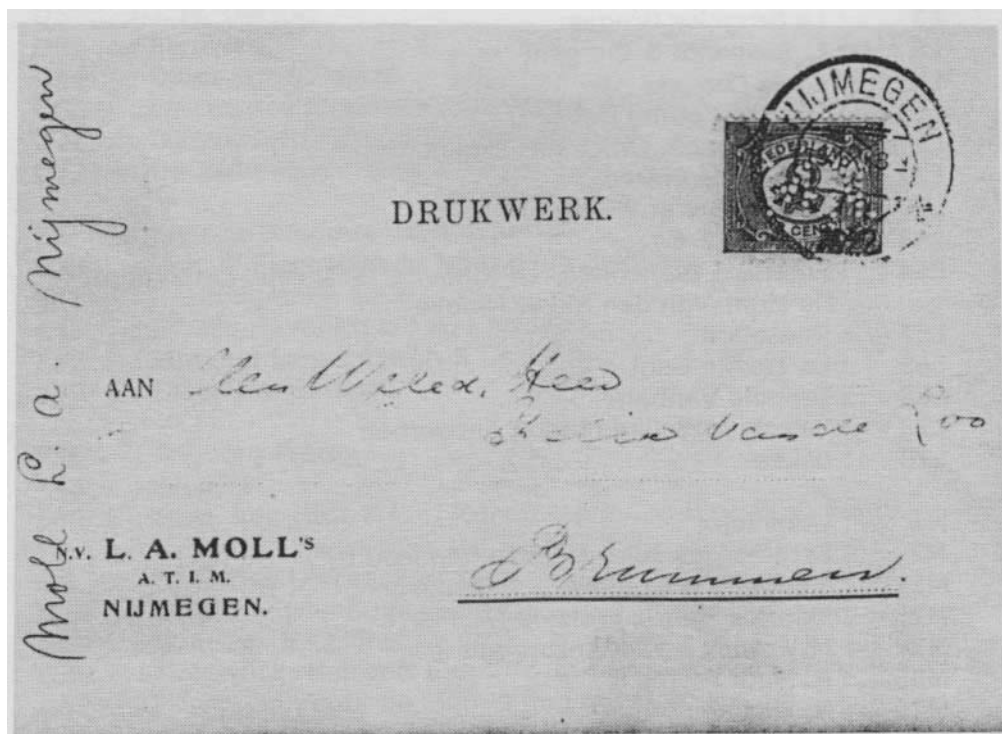 Moll L. A. Nijmegen
NIJMEGEN
NEDERLAND
CENT
DRUKWERK.
AAN Den Weled. Heer
van de Loo
N.V. L. A. MOLL's
A. T. I. M.
NIJMEGEN.
Brummen.